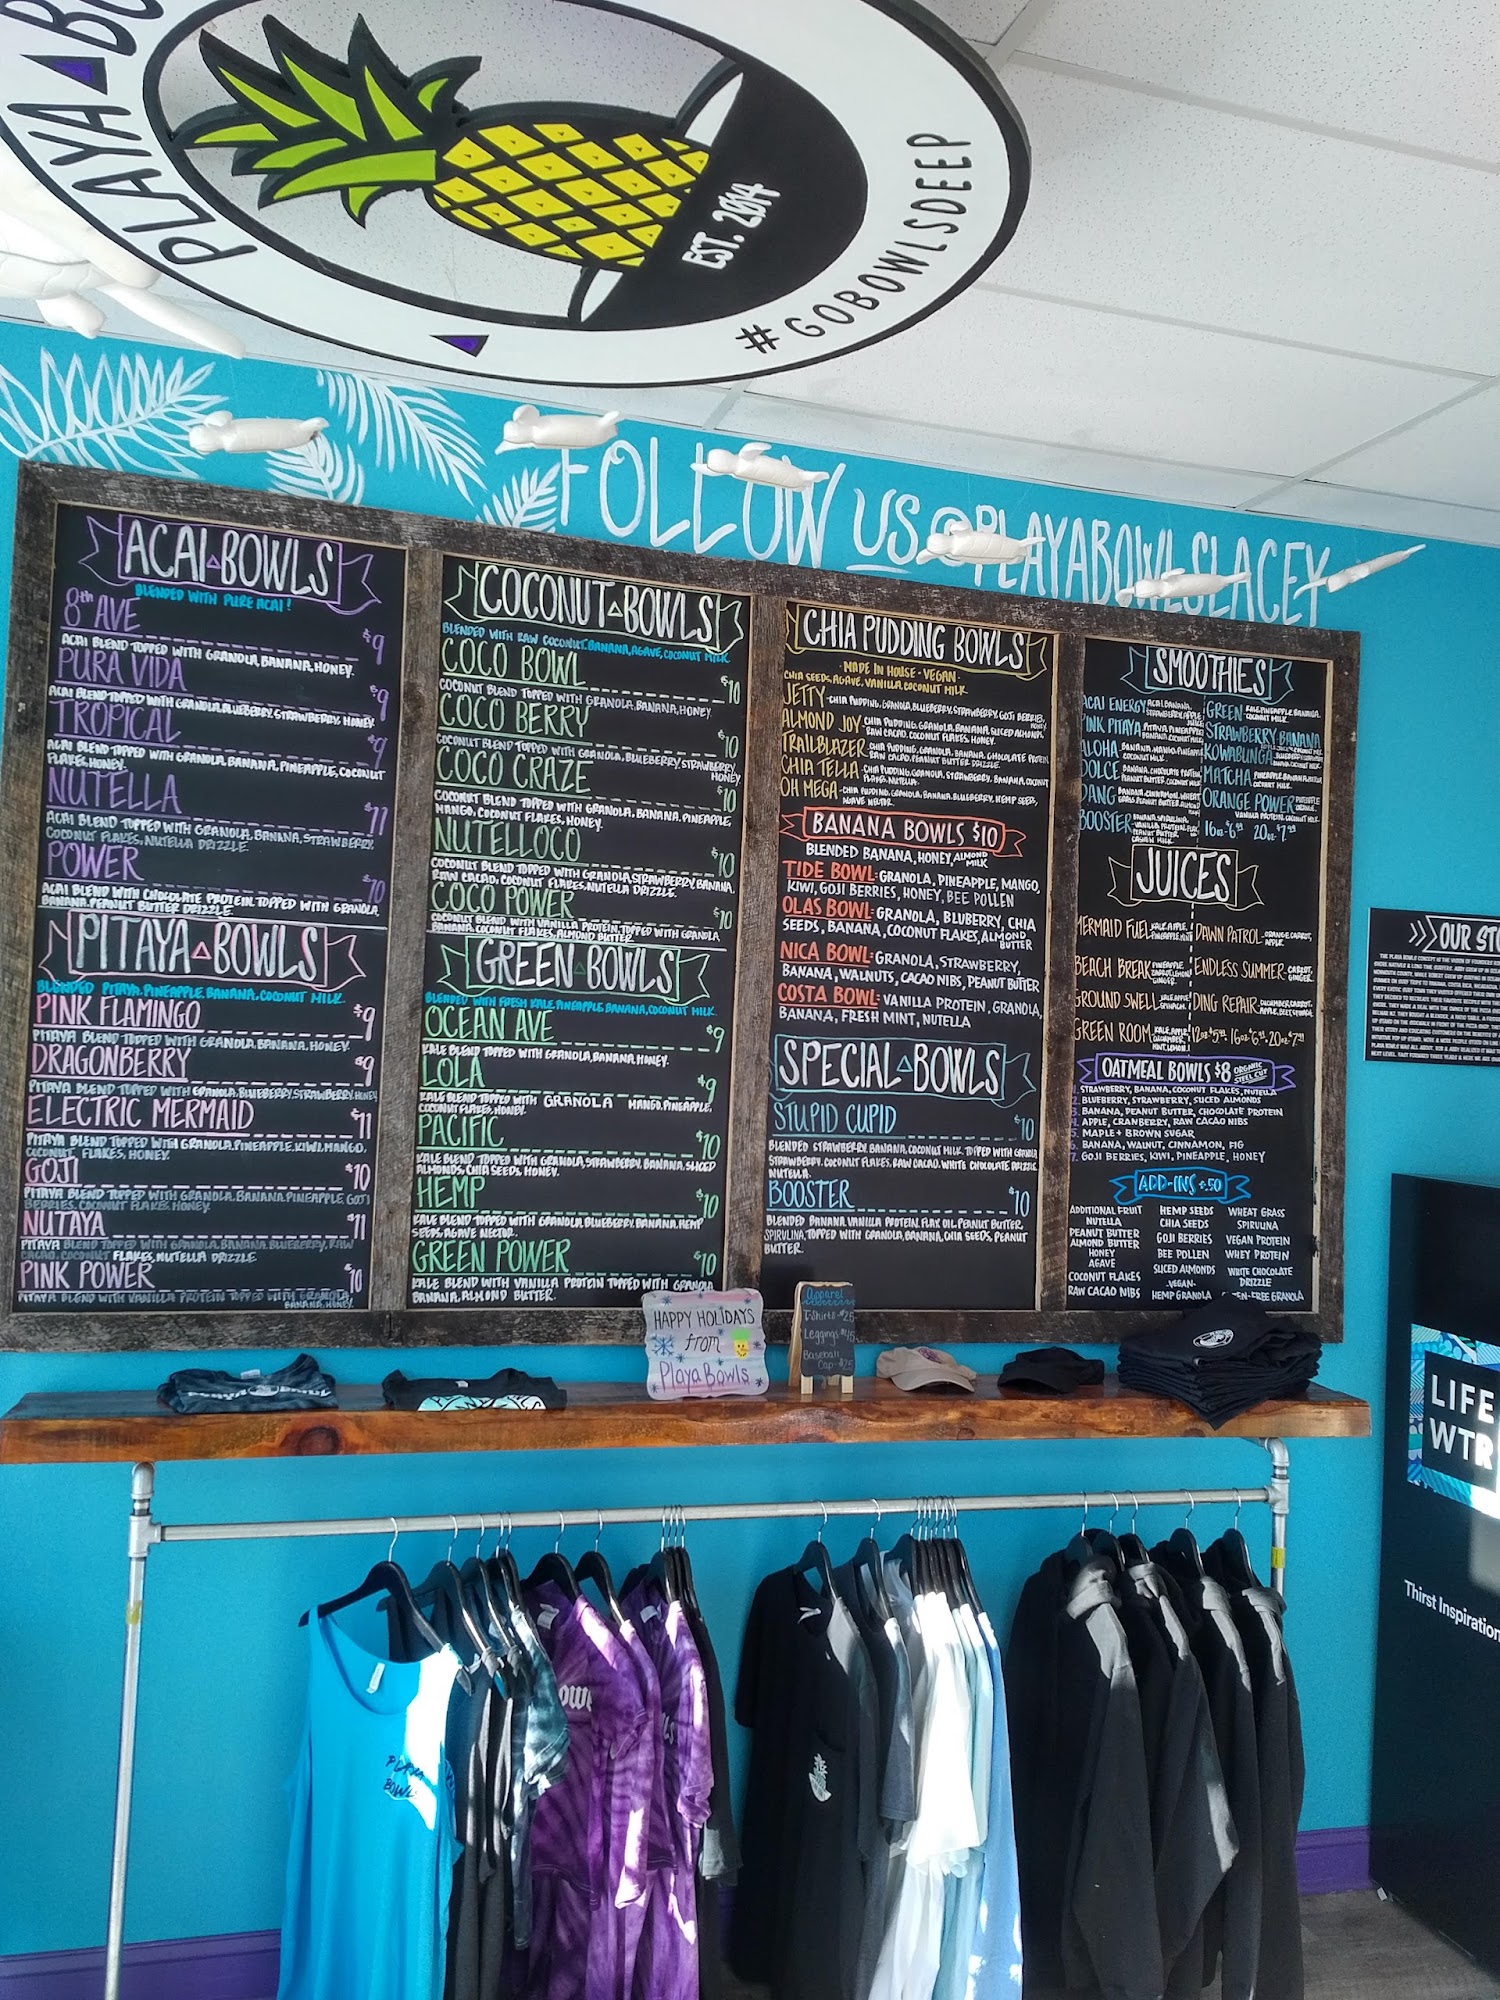 PLAYA
EST. 2014
#GOBOWLSDEEP
FOLLOW US @PLAYABOWLSLACEY
ACAI BOWLS
BLENDED WITH PURE ACAI!
8th AVE $9
ACAI BLEND TOPPED WITH GRANOLA, BANANA, HONEY.
PURA VIDA $9
ACAI BLEND TOPPED WITH GRANOLA, BLUEBERRY, STRAWBERRY, HONEY.
TROPICAL $9
ACAI BLEND TOPPED WITH GRANOLA, BANANA, PINEAPPLE, COCONUT
FLAKES, HONEY.
NUTELLA $11
ACAI BLEND TOPPED WITH GRANOLA, BANANA, STRAWBERRY,
COCONUT FLAKES, NUTELLA DRIZZLE.
POWER $10
ACAI BLEND WITH CHOCOLATE PROTEIN. TOPPED WITH GRANOLA,
BANANA, PEANUT BUTTER DRIZZLE.
PITAYA BOWLS
BLENDED PITAYA, PINEAPPLE, BANANA, COCONUT MILK.
PINK FLAMINGO $9
PITAYA BLEND TOPPED WITH GRANOLA, BANANA, HONEY.
DRAGONBERRY $9
PITAYA BLEND TOPPED WITH GRANOLA, BLUEBERRY, STRAWBERRY, HONEY
ELECTRIC MERMAID $11
PITAYA BLEND TOPPED WITH GRANOLA, PINEAPPLE, KIWI, MANGO,
COCONUT FLAKES, HONEY.
GOJI $10
PITAYA BLEND TOPPED WITH GRANOLA, BANANA, PINEAPPLE, GOJI
BERRIES, COCONUT FLAKES, HONEY.
NUTAYA $11
PITAYA BLEND TOPPED WITH GRANOLA, BANANA, BLUEBERRY, RAW
CACAO, COCONUT FLAKES, NUTELLA DRIZZLE
PINK POWER $10
PITAYA BLEND WITH VANILLA PROTEIN TOPPED WITH GRANOLA
BANANA, HONEY.
COCONUT BOWLS
BLENDED WITH RAW COCONUT, BANANA, AGAVE, COCONUT MILK
COCO BOWL $10
COCONUT BLEND TOPPED WITH GRANOLA, BANANA, HONEY.
COCO BERRY $10
COCONUT BLEND TOPPED WITH GRANOLA, BLUEBERRY, STRAWBERRY,
HONEY
COCO CRAZE $10
COCONUT BLEND TOPPED WITH GRANOLA, BANANA, PINEAPPLE,
MANGO, COCONUT FLAKES, HONEY.
NUTELLOCO $10
COCONUT BLEND TOPPED WITH GRANOLA, STRAWBERRY, BANANA,
RAW CACAO, COCONUT FLAKES, NUTELLA DRIZZLE
COCO POWER $10
COCONUT BLEND WITH VANILLA PROTEIN, TOPPED WITH GRANOLA,
BANANA, COCONUT FLAKES, ALMOND BUTTER.
GREEN BOWLS
BLENDED WITH FRESH KALE, PINEAPPLE, BANANA, COCONUT MILK.
OCEAN AVE $9
KALE BLEND TOPPED WITH GRANOLA, BANANA, HONEY.
LOLA $9
KALE BLEND TOPPED WITH GRANOLA MANGO, PINEAPPLE,
COCONUT FLAKES, HONEY.
PACIFIC $10
KALE BLEND TOPPED WITH GRANOLA, STRAWBERRY, BANANA, SLICED
ALMONDS, CHIA SEEDS, HONEY.
HEMP $10
KALE BLEND TOPPED WITH GRANOLA, BLUEBERRY, BANANA, HEMP
SEEDS, AGAVE NECTAR.
GREEN POWER $10
KALE BLEND WITH VANILLA PROTEIN TOPPED WITH GRANOLA
BANANA, ALMOND BUTTER.
CHIA PUDDING BOWLS
·MADE IN HOUSE·VEGAN·
CHIA SEEDS, AGAVE, VANILLA, COCONUT MILK
JETTY-CHIA PUDDING, GRANOLA, BLUEBERRY, STRAWBERRY, GOJI BERRIES,
HONEY
ALMOND JOY-CHIA PUDDING, GRANOLA, BANANA, SLICED ALMONDS,
RAW CACAO, COCONUT FLAKES, HONEY.
TRAILBLAZER-CHIA PUDDING, GRANOLA, BANANA, CHOCOLATE PROTEIN
RAW CACAO, PEANUT BUTTER DRIZZLE.
CHIA TELLA-CHIA PUDDING, GRANOLA, STRAWBERRY, BANANA, COCONUT
FLAKES, NUTELLA.
OH MEGA-CHIA PUDDING, GRANOLA, BANANA, BLUEBERRY, HEMP SEEDS,
AGAVE NECTAR.
BANANA BOWLS $10
BLENDED BANANA, HONEY, ALMOND MILK
TIDE BOWL: GRANOLA, PINEAPPLE, MANGO,
KIWI, GOJI BERRIES, HONEY, BEE POLLEN
OLAS BOWL: GRANOLA, BLUBERRY, CHIA
SEEDS, BANANA, COCONUT FLAKES, ALMOND BUTTER
NICA BOWL: GRANOLA, STRAWBERRY,
BANANA, WALNUTS, CACAO NIBS, PEANUT BUTTER
COSTA BOWL: VANILLA PROTEIN, GRANOLA,
BANANA, FRESH MINT, NUTELLA
SPECIAL BOWLS
STUPID CUPID $10
BLENDED STRAWBERRY, BANANA, COCONUT MILK. TOPPED WITH GRANOLA
STRAWBERRY, COCONUT FLAKES, RAW CACAO, WHITE CHOCOLATE DRIZZLE,
NUTELLA.
BOOSTER $10
BLENDED BANANA, VANILLA PROTEIN, FLAX OIL, PEANUT BUTTER,
SPIRULINA, TOPPED WITH GRANOLA, BANANA, CHIA SEEDS, PEANUT
BUTTER.
SMOOTHIES
ACAI ENERGY
PINK PITAYA
ALOHA BANANA, MANGO, PINEAPPLE COCONUT MILK.
DOLCE BANANA, CHOCOLATE PROTEIN PEANUT BUTTER, COCONUT MILK
DANG
BOOSTER
GREEN KALE, PINEAPPLE, BANANA, COCONUT MILK.
STRAWBERRY BANANA
KOWABUNGA
MATCHA
ORANGE POWER
VANILLA PROTEIN, COCONUT MILK.
16oz $6.99 20oz $7.99
JUICES
MERMAID FUEL KALE, APPLE, PINEAPPLE, MINT
DAWN PATROL-ORANGE, CARROT, APPLE.
BEACH BREAK
ENDLESS SUMMER-CARROT, GINGER.
GROUND SWELL
DING REPAIR-CUCUMBER, CARROT, APPLE, BEET
GREEN ROOM KALE, APPLE, CUCUMBER, MINT, LEMON
12oz $5.99 16oz $6.99 20oz $7.99
OATMEAL BOWLS $8 ORGANIC STEEL CUT
1. STRAWBERRY, BANANA, COCONUT FLAKES, NUTELLA
2. BLUEBERRY, STRAWBERRY, SLICED ALMONDS
3. BANANA, PEANUT BUTTER, CHOCOLATE PROTEIN
4. APPLE, CRANBERRY, RAW CACAO NIBS
5. MAPLE + BROWN SUGAR
6. BANANA, WALNUT, CINNAMON, FIG
7. GOJI BERRIES, KIWI, PINEAPPLE, HONEY
ADD-INS +.50
ADDITIONAL FRUIT
NUTELLA
PEANUT BUTTER
ALMOND BUTTER
HONEY
AGAVE
COCONUT FLAKES
RAW CACAO NIBS
HEMP SEEDS
CHIA SEEDS
GOJI BERRIES
BEE POLLEN
SLICED ALMONDS
-VEGAN-
HEMP GRANOLA
WHEAT GRASS
SPIRULINA
VEGAN PROTEIN
WHEY PROTEIN
WHITE CHOCOLATE
DRIZZLE
GLUTEN-FREE GRANOLA
OUR STO
HAPPY HOLIDAYS
from
Playa Bowls
Apparel
T-Shirts-$25
Leggings
Baseball
Cap-$25
LIFE
WTR
Thirst Inspiration
PLAYA
BOWLS